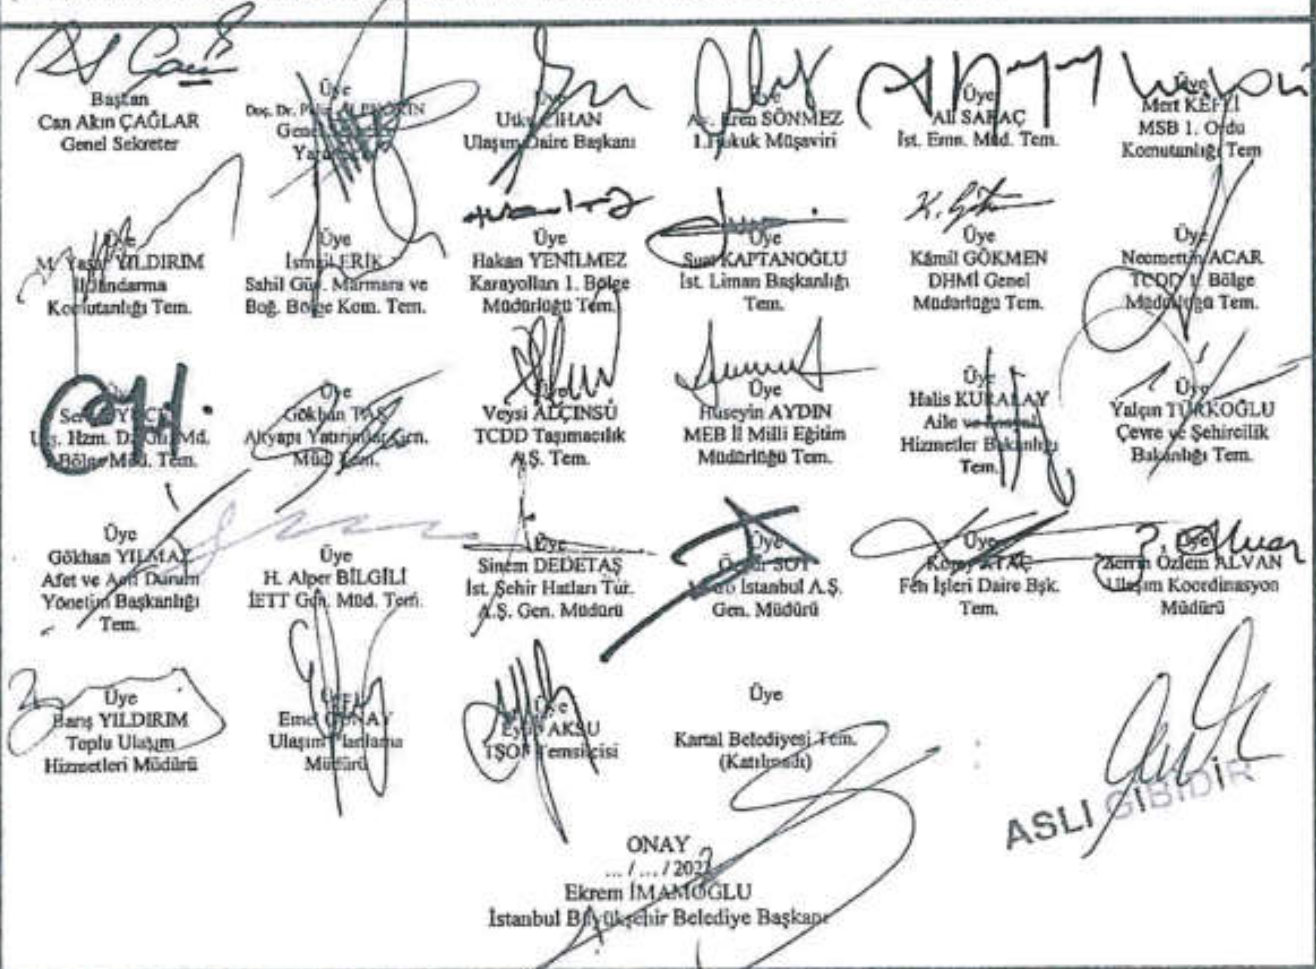 Başkan
Can Akın ÇAĞLAR
Genel Sekreter
Üye
Doç. Dr.
Üye
Utku CİHAN
Ulaşım Daire Başkanı
Üye
Av. Eren SÖNMEZ
1.Hukuk Müşaviri
Üye
Ali SARAÇ
İst. Emn. Müd. Tem.
Üye
Mert KEFLİ
MSB 1. Ordu
Komutanlığı Tem
M. Yaşar YILDIRIM
İl Jandarma
Komutanlığı Tem.
Üye
İsmail ERİK
Sahil Güv. Marmara ve
Boğ. Bölge Kom. Tem.
Üye
Hakan YENİLMEZ
Karayolları 1. Bölge
Müdürlüğü Tem.
Üye
Suat KAPTANOĞLU
İst. Liman Başkanlığı
Tem.
K. Gökmen
Üye
Kâmil GÖKMEN
DHMİ Genel
Müdürlüğü Tem.
Üye
Necmettin ACAR
TCDD 1. Bölge
Müdürlüğü Tem.
Bölge Müd. Tem.
Üye
Gökhan TAŞ
Altyapı Yatırımlar Gen.
Müd. Tem.
Üye
Veysi ALÇINSU
TCDD Taşımacılık
A.Ş. Tem.
Üye
Hüseyin AYDIN
MEB İl Milli Eğitim
Müdürlüğü Tem.
Üye
Halis KURALAY
Aile ve Sosyal
Hizmetler Bakanlığı
Tem.
Üye
Yalçın TÜRKOĞLU
Çevre ve Şehircilik
Bakanlığı Tem.
Üye
Gökhan YILMAZ
Afet ve Acil Durum
Yönetim Başkanlığı
Tem.
Üye
H. Alper BİLGİLİ
İETT Gen. Müd. Tem.
Üye
Sinem DEDETAŞ
İst. Şehir Hatları Tur.
A.Ş. Gen. Müdürü
Üye
Özgür SOY
Metro İstanbul A.Ş.
Gen. Müdürü
Üye
Koray ATAÇ
Fen İşleri Daire Bşk.
Tem.
Üye
Zerrin Özlem ALVAN
Ulaşım Koordinasyon
Müdürü
Üye
Barış YILDIRIM
Toplu Ulaşım
Hizmetleri Müdürü
Üye
Emel GÜNAY
Ulaşım Planlama
Müdürü
Üye
Eyüp AKSU
TŞOF Temsilcisi
Üye
Kartal Belediyesi Tem.
(Katılmadı)
ASLI GİBİDİR
ONAY
... / ... / 202
Ekrem İMAMOĞLU
İstanbul Büyükşehir Belediye Başkanı